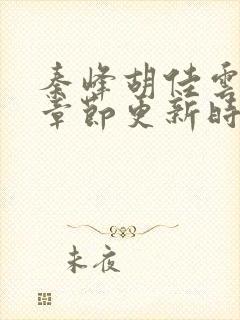 秦峰胡佳雲
章節更新時
未夜